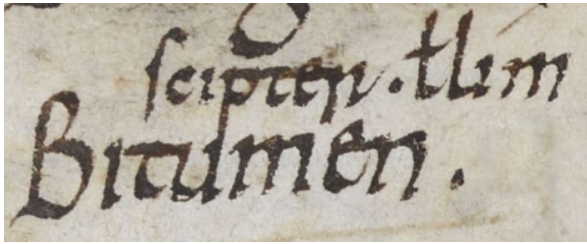 scipter . ł lim
Bitumen .